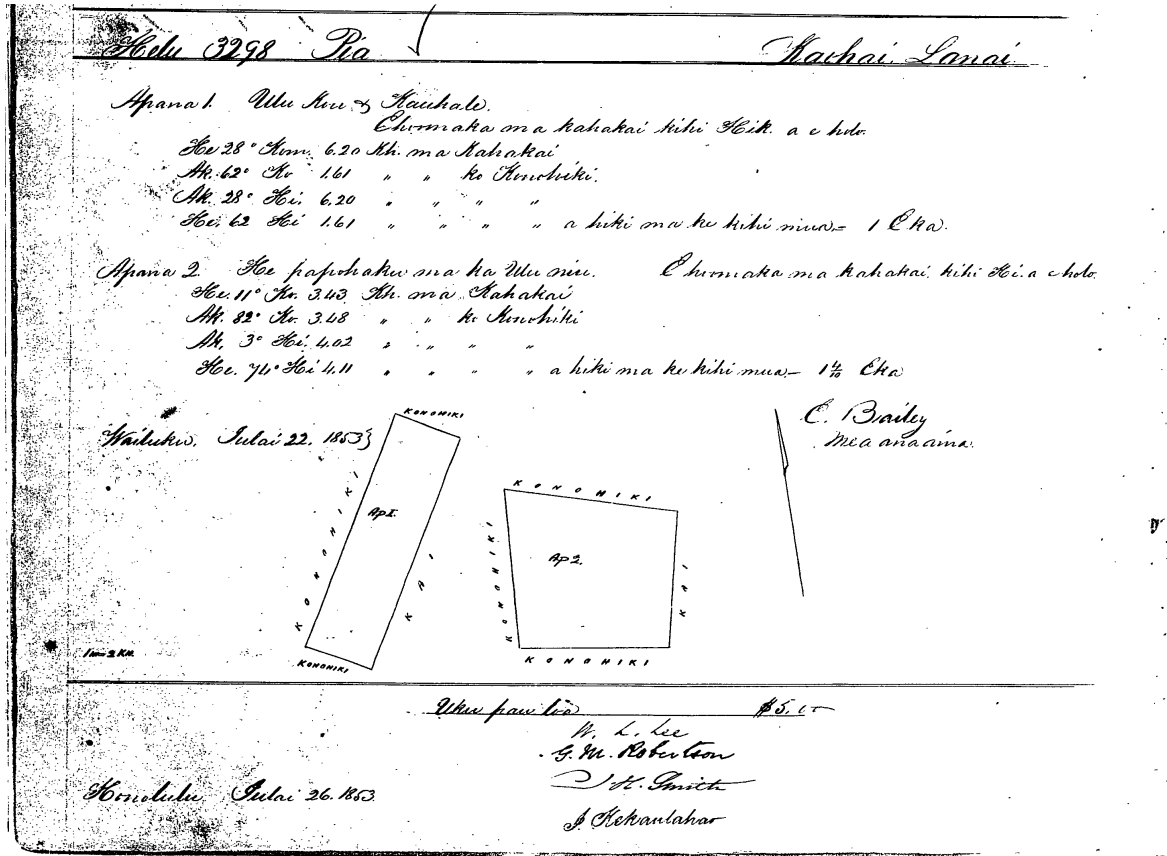 Helu 3298 Pia Kaohai Lanai
Apana 1. Ulu Kou & Kauhale.
Ehoomaka ma kahakai kihi Hik. a e holo.
He 28° Kom. 6.20 Kh. ma Kahakai
Ak. 62° Ko 1.61 " " ko Konohiki.
Ak. 28° Hi. 6.20 " " " "
He. 62 Hi 1.61 " " " " a hiki ma ke kihi mua = 1 Eka.
Apana 2. He papohaku ma ka Ulu niu. Ehoomaka ma kahakai kihi Hi. a e holo.
He. 11° Ko. 3.43 Kh. ma Kahakai
Ak. 82° Ko. 3.48 " " ko Konohiki
Ak. 3° Hi. 4.02 " " " "
He. 74° Hi 4.11 " " " " a hiki ma ke kihi mua – 1 4/10 Eka
E. Bailey
Mea ana aina.
Wailuku. Iulai 22. 1853}
KONOHIKI
KONOHIKI
Ap 1.
KAI
KONOHIKI
KONOHIKI
KONOHIKI
Ap 2.
KAI
KONOHIKI
1 in = 2 KH.
Uku pau loa $5.00
W. L. Lee
G. M. Robertson
J. H. Smith
Honolulu Iulai 26. 1853.
J. Kekaulahao